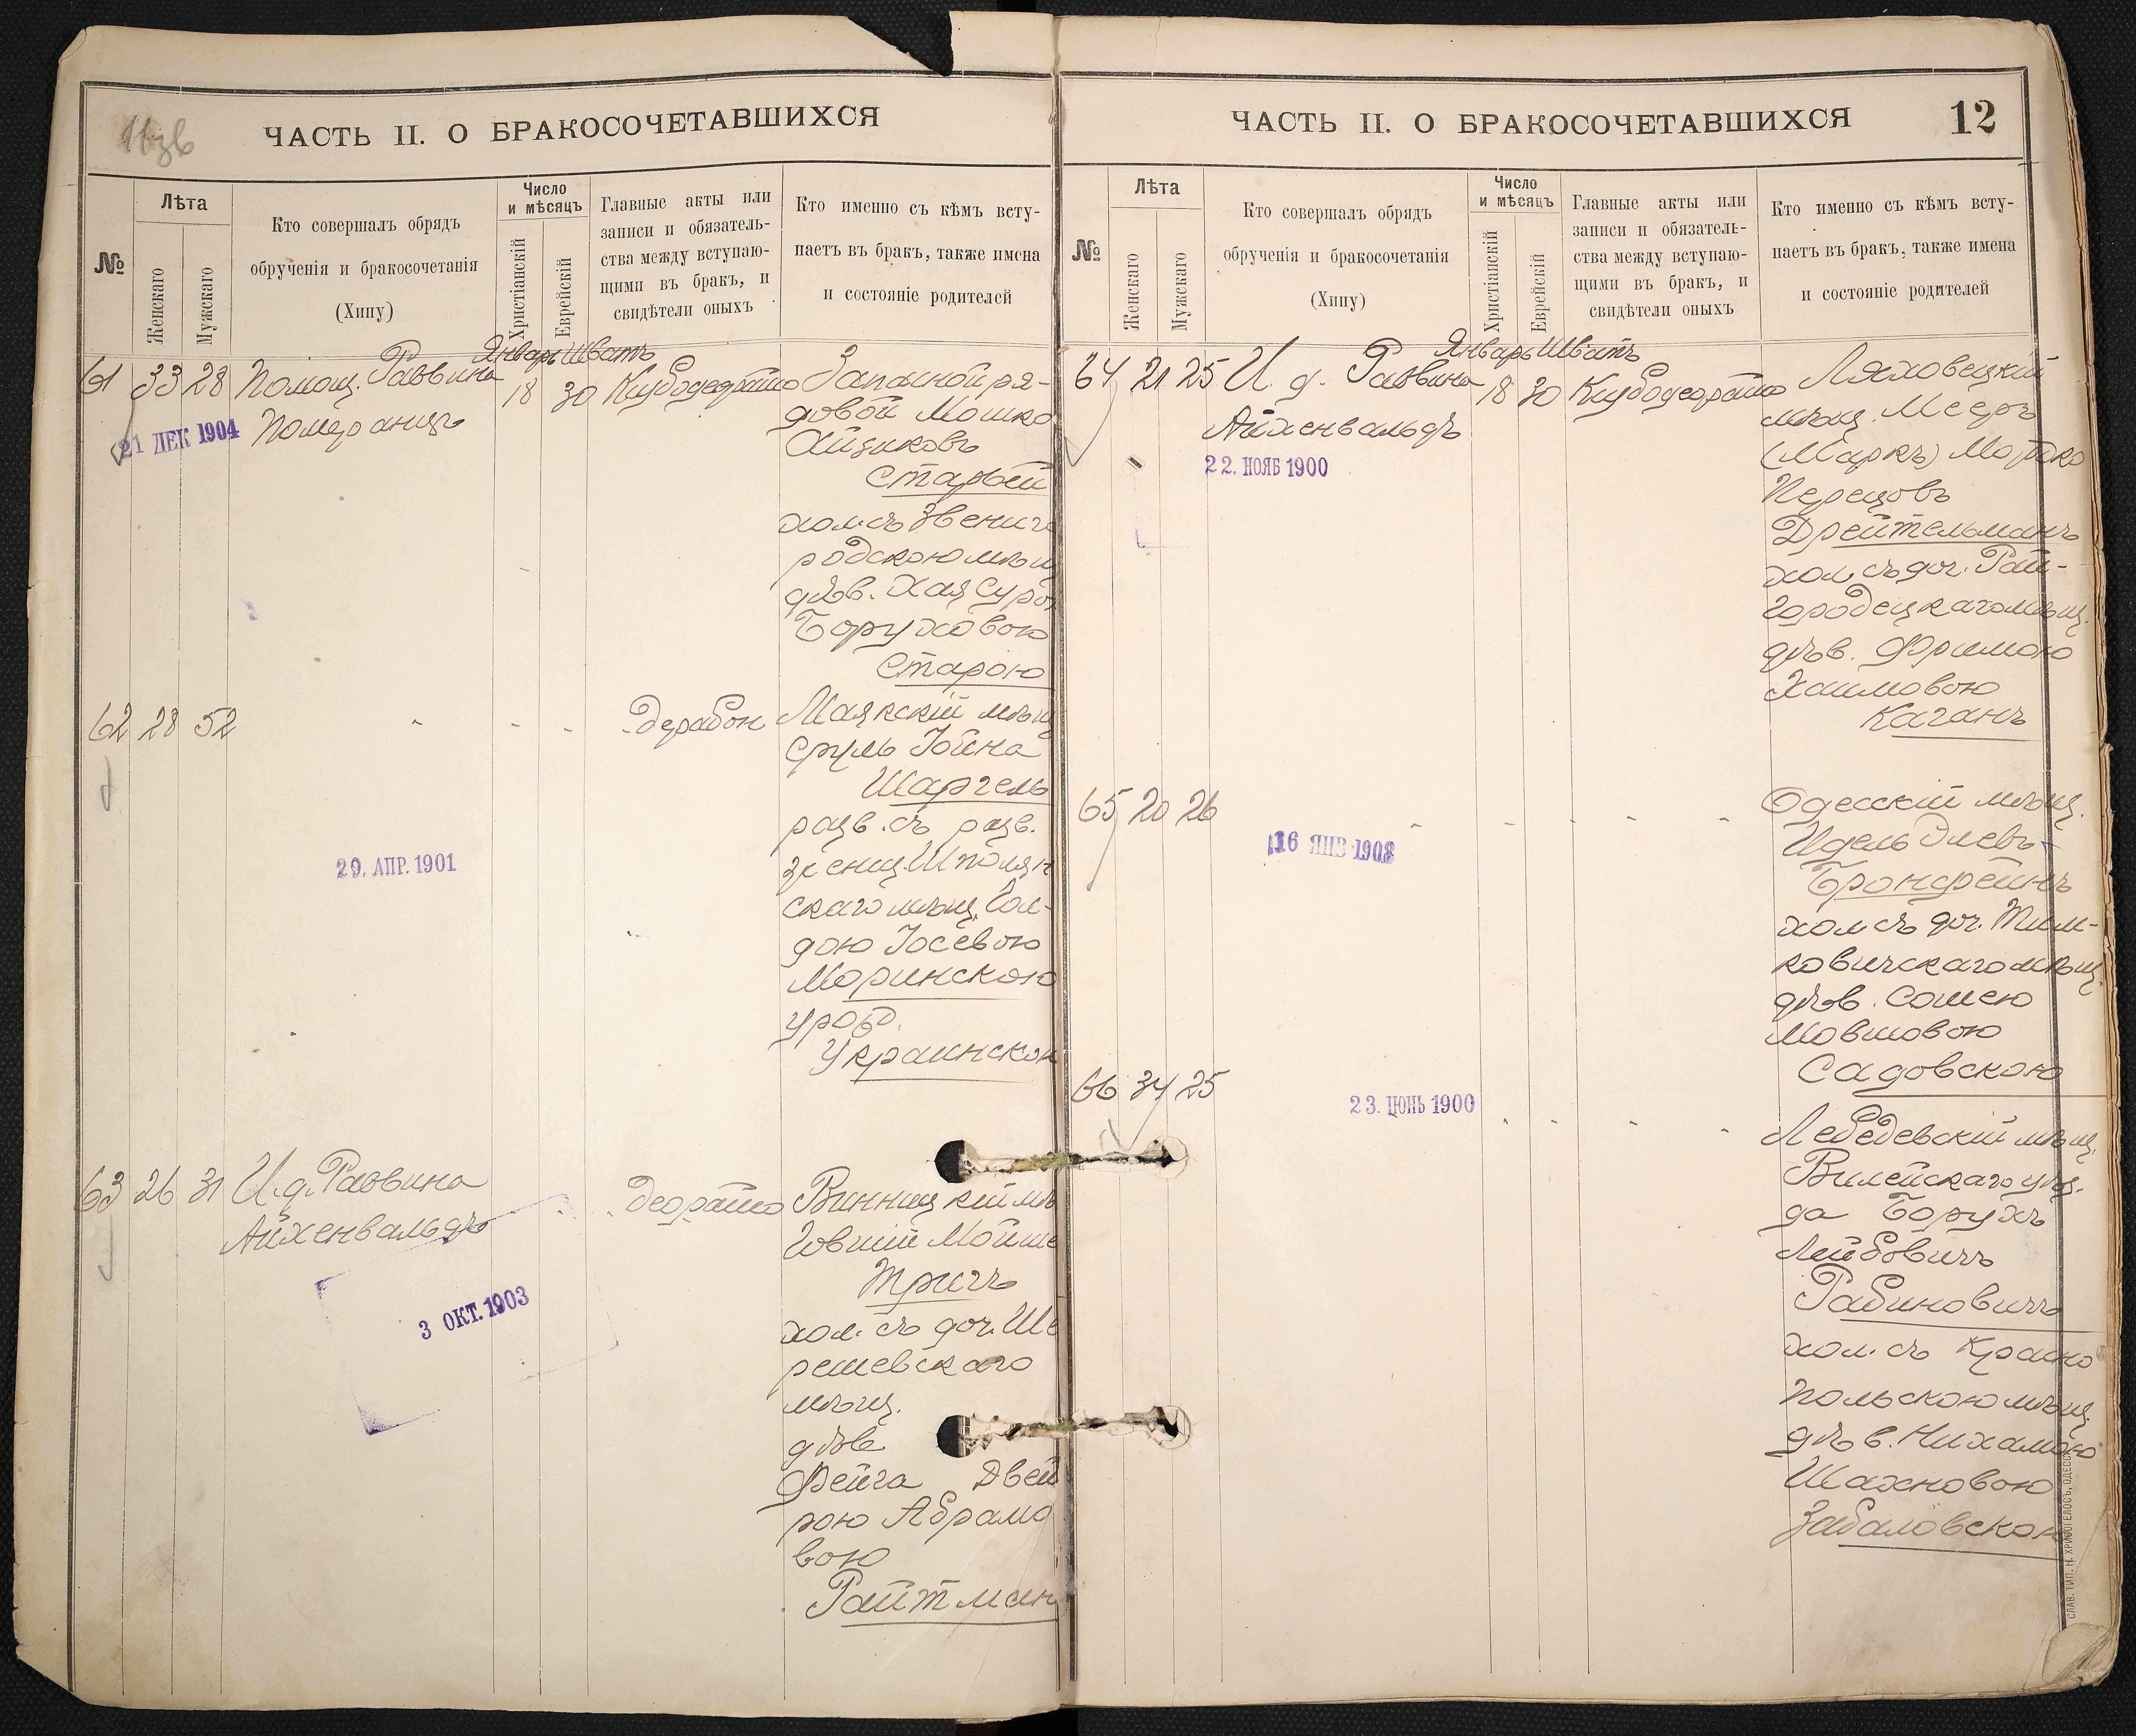 Изв
ЧАСТЬ II. О БРАКОСОЧЕТАВШИХСЯ
№
Лѣта
Женскаго
Мужскаго
Кто совершалъ обрядъ
обрученія и бракосочетанія
(Хипу)
Число
и мѣсяцъ
Христіанскій
Еврейскій
Главные акты или
записи и обязатель-
ства между вступаю-
щими въ бракъ, и
свидѣтели оныхъ
Кто именно съ кѣмъ всту-
паетъ въ бракъ, также имена
и состояніе родителей
Январь Шватъ
61 33 28 Помощ. Раввина 18 30
Померанцъ
21 ДЕК 1904
Запасной ря-
довой Мошко
Айзиковъ
Старый
хол. съ Звениго
родскою мѣщ
дѣв. Хая Сурою
Боруховою
Старою
62 28 52 Дерабон
29. АПР. 1901
Маякскій мѣщ
Сруль Іойна
Шаргель
разв. съ разв.
женщ. Шполян
скаго мѣщ. Гол-
дою Іосевою
Моринскою
урожд.
Украинскою
63 26 31 И. д. Раввина
Айхенвальдъ
3 ОКТ. 1903
Винницкій мѣ
Говшій Мойше
Тригъ
хол. съ доч. Ше
решевскаго
мѣщ.
дѣв
Фейга Двей
рою Абрамо
вою
Райтман
ЧАСТЬ II. О БРАКОСОЧЕТАВШИХСЯ
12
№
Лѣта
Женскаго
Мужскаго
Кто совершалъ обрядъ
обрученія и бракосочетанія
(Хипу)
Число
и мѣсяцъ
Христіанскій
Еврейскій
Главные акты или
записи и обязатель-
ства между вступаю-
щими въ бракъ, и
свидѣтели оныхъ
Кто именно съ кѣмъ всту-
паетъ въ бракъ, также имена
и состояніе родителей
Январь Шватъ
64 21 25 И. д. Раввина 18 30
Айхенвальдъ
22. НОЯБ 1900
Ляховецкій
мѣщ. Мееръ
(Маркъ) Мордко
Перецовъ
Дрейтельманъ
хол. съ доч. Рай-
городецкаго мѣщ.
дѣв. Фримою
Хаимовою
Каганъ
65 20 26
16 ЯНВ 1908
Одесскій мѣщ.
Идель Элевъ
Бронфейнъ
хол съ доч. Тим-
ковичскаго мѣщ.
дѣв. Сошею
Мовшовою
Садовскою
66 34 25
23. ІЮНЬ 1900
Лебедевскій мѣщ.
Вилейскаго уѣз.
да Борухъ
Лейбовичъ
Рабиновичъ
хол. съ Красно
польскою мѣщ.
дѣв. Нихамою
Шахновою
Забаловскою
СЛАВ. ТИП. Н. ХРИСОГЕЛОСЪ, ОДЕССА